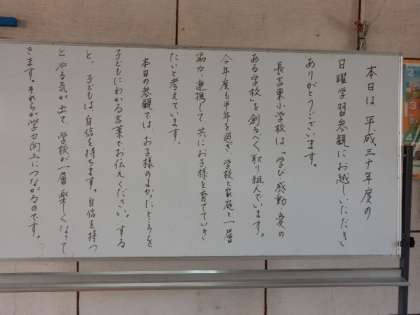 本日は、平成三十年度の
日曜学習参観にお越しいただき
ありがとうございます。
長吉東小学校は、「学び・感動・愛の
ある学校」を創るべく取り組んでいます。
今年度も半年を過ぎ、学校と家庭と一層
協力・連携して、共にお子様を育てていき
たいと考えています。
本日の参観では、お子様のよかったところを
子どもにわかる言葉でお伝えください。する
と、子どもは、自信を持ちます。自信を持つ
とやる気が出て、学校が一層楽しくなって
きます。それが学力向上につながるのです。